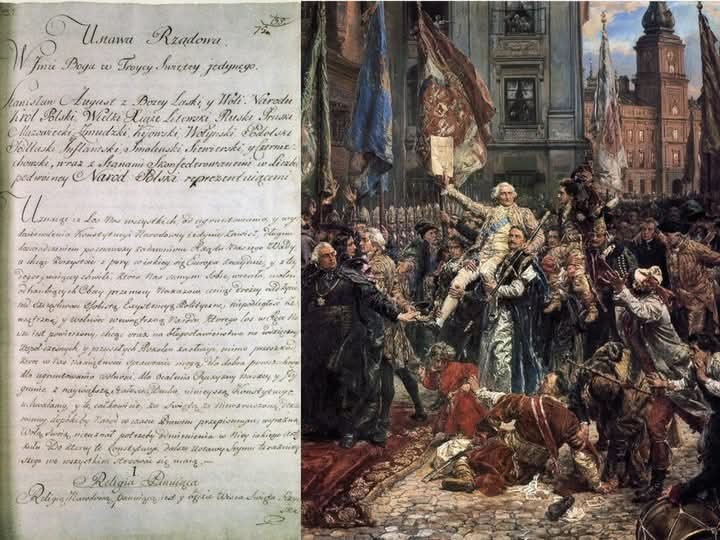 Ustawa Rządowa.
W Imie Boga w Troycy Swiętey jedynego.
Stanisław August z Bożey Łaski, y Woli Narodu
Krol Polski, Wielki Xiąże Litewski, Ruski, Pruski
Mazowiecki, Zmudzki, Kijowski, Wołynski, Podolski
Podlaski, Inflantski, Smolenski, Siewierski, y Czernie-
chowski, wraz z Stanami Skonfederowanemi w liczbie
podwoyney Narod Polski reprezentuiącemi
Uznaiąc iż Los Nas wszystkich, od ugruntowania, y wy-
doskonalenia Konstytucyi Narodowey iedynie zawisł, długim
doświadczeniem poznawszy zadawnione Rządu Naszego Wady
a chcąc korzystać z pory w iakiey się Europa znayduie, y z tey
dogorywaiącey chwili, ktora Nas samym Sobie wrociła, wolni
od hańbiących Obcey przemocy Nakazow, ceniąc drożey nad życie
nad szczęśliwość Osobistą, Exystencyą Polityczną, niepodległość ze-
wnętrzną, y wolność wewnętrzną Narodu, ktorego los w Ręce Na-
sze iest powierzony, chcąc oraz na błogosławieństwo na wdzięczność
wspołczesnych, y przyszłych Pokoleń zasłużyć, mimo przeszkod,
ktore w Nas Namiętności sprawować mogą, dla dobra powszechnego
dla ugruntowania wolności, dla ocalenia Oyczyzny naszey, y Jey
granic z naywiększą stałością Ducha, ninieyszą Konstytucyę
uchwalamy, y tę całkowicie za Swiętą za Niewzruszoną
dopoki by Narod w czasie Prawem przepisanym, wyraźną
Wolą Swoią, nieuznał potrzeby odmienienia w Niey iakiego Arty-
kułu. Do ktorey to Konstytucyi dalsze Ustawy Seymu
we wszystkim stosować się maią.
I
Religia Panuiąca
Religią Narodową panuiącą iest, y będzie Wiara Swięta